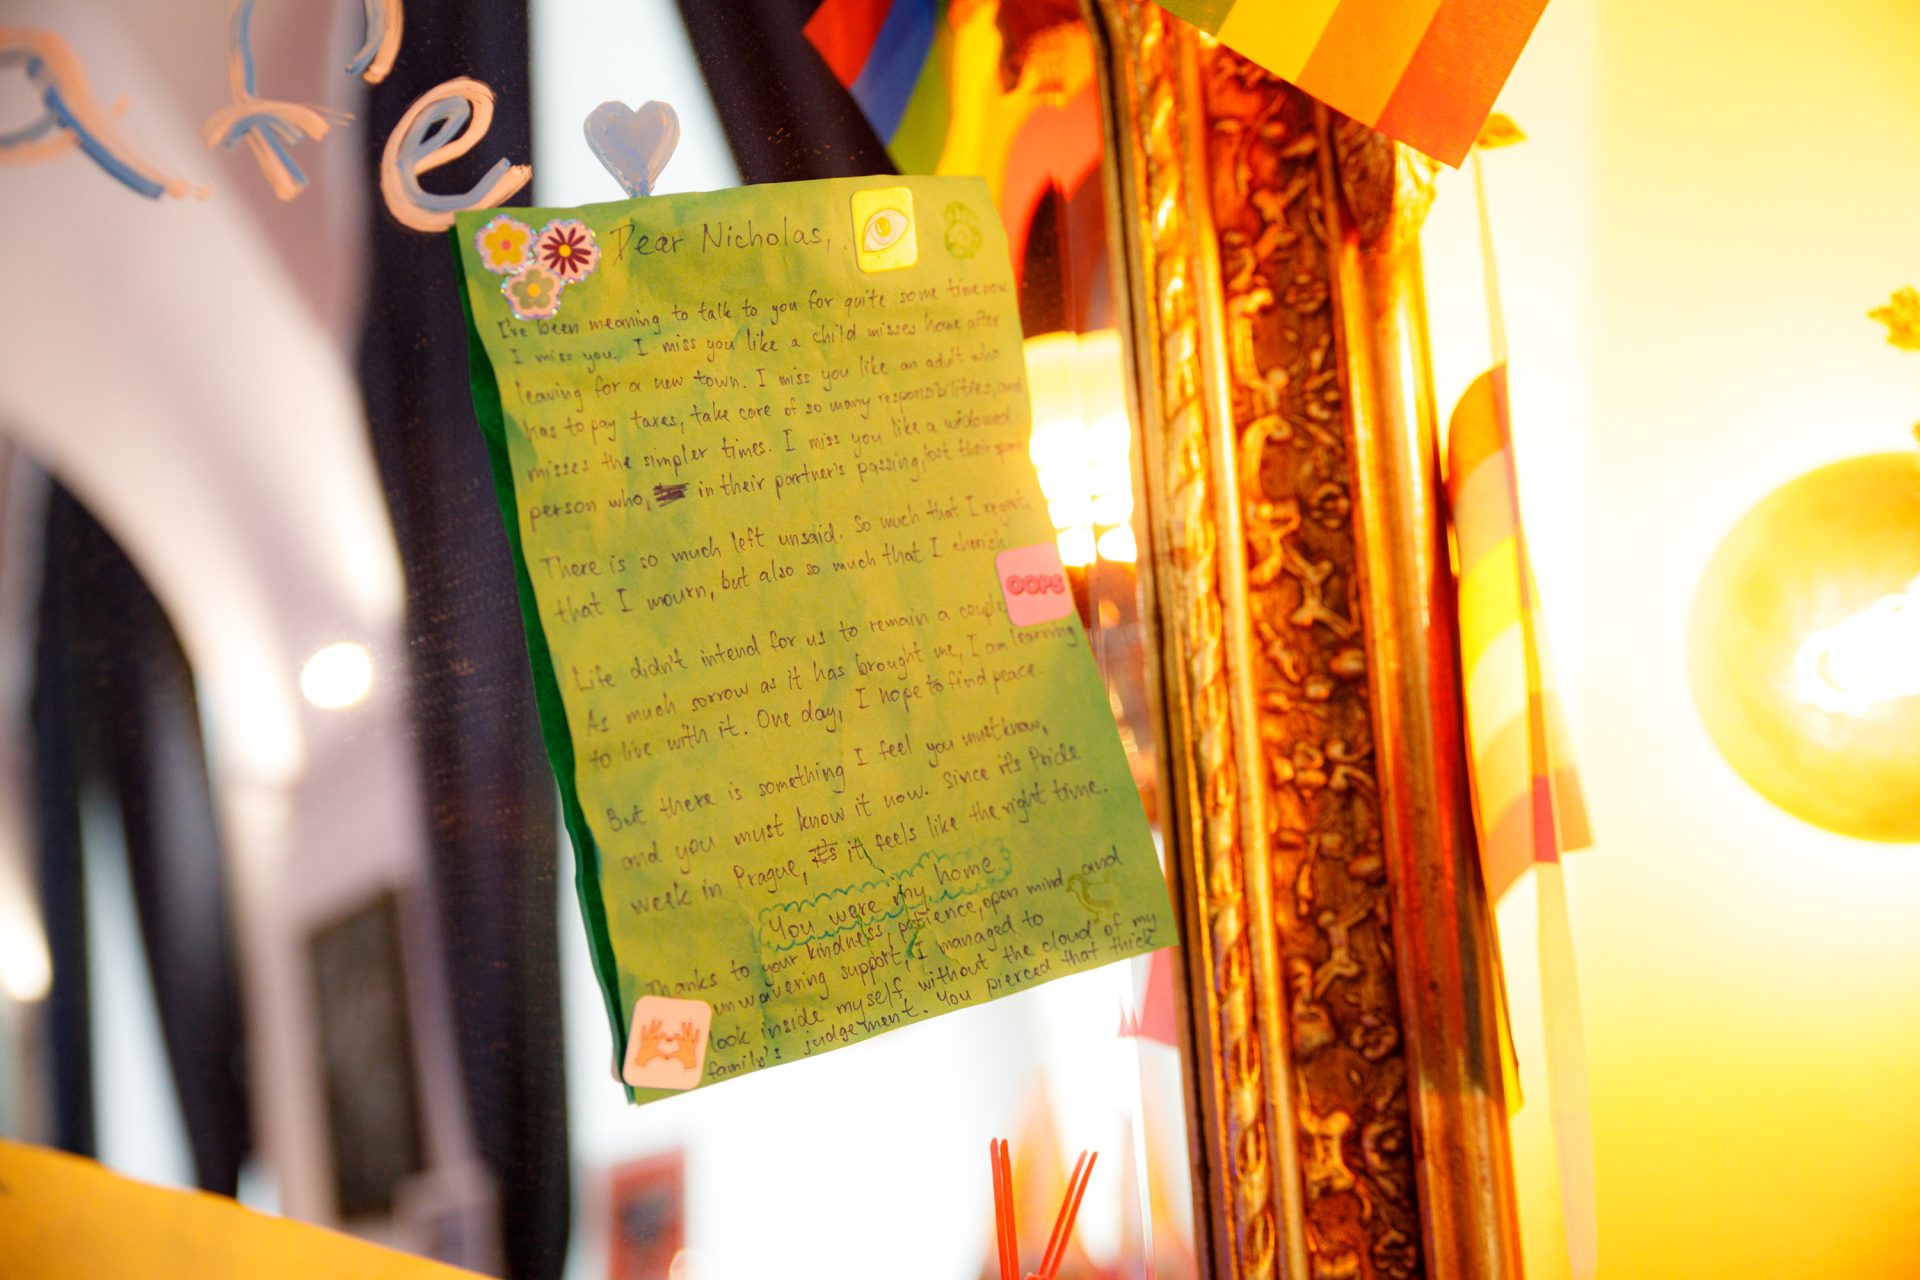 Dear Nicholas,
I've been meaning to talk to you for quite some time now.
I miss you. I miss you like a child misses home after
leaving for a new town. I miss you like an adult who
has to pay taxes, take care of so many responsibilities, and
misses the simpler times. I miss you like a widowed
person who, in their partner's passing, lost their spark.
There is so much left unsaid. So much that I regret,
that I mourn, but also so much that I cherish.
OOPS
Life didn't intend for us to remain a couple.
As much sorrow as it has brought me, I am learning
to live with it. One day, I hope to find peace.
But there is something I feel you must know,
and you must know it now. Since it's Pride
week in Prague, it feels like the right time.
You were my home
Thanks to your kindness, patience, open mind and
unwavering support, I managed to
look inside myself without the cloud of my
family's judgement. You pierced that thick